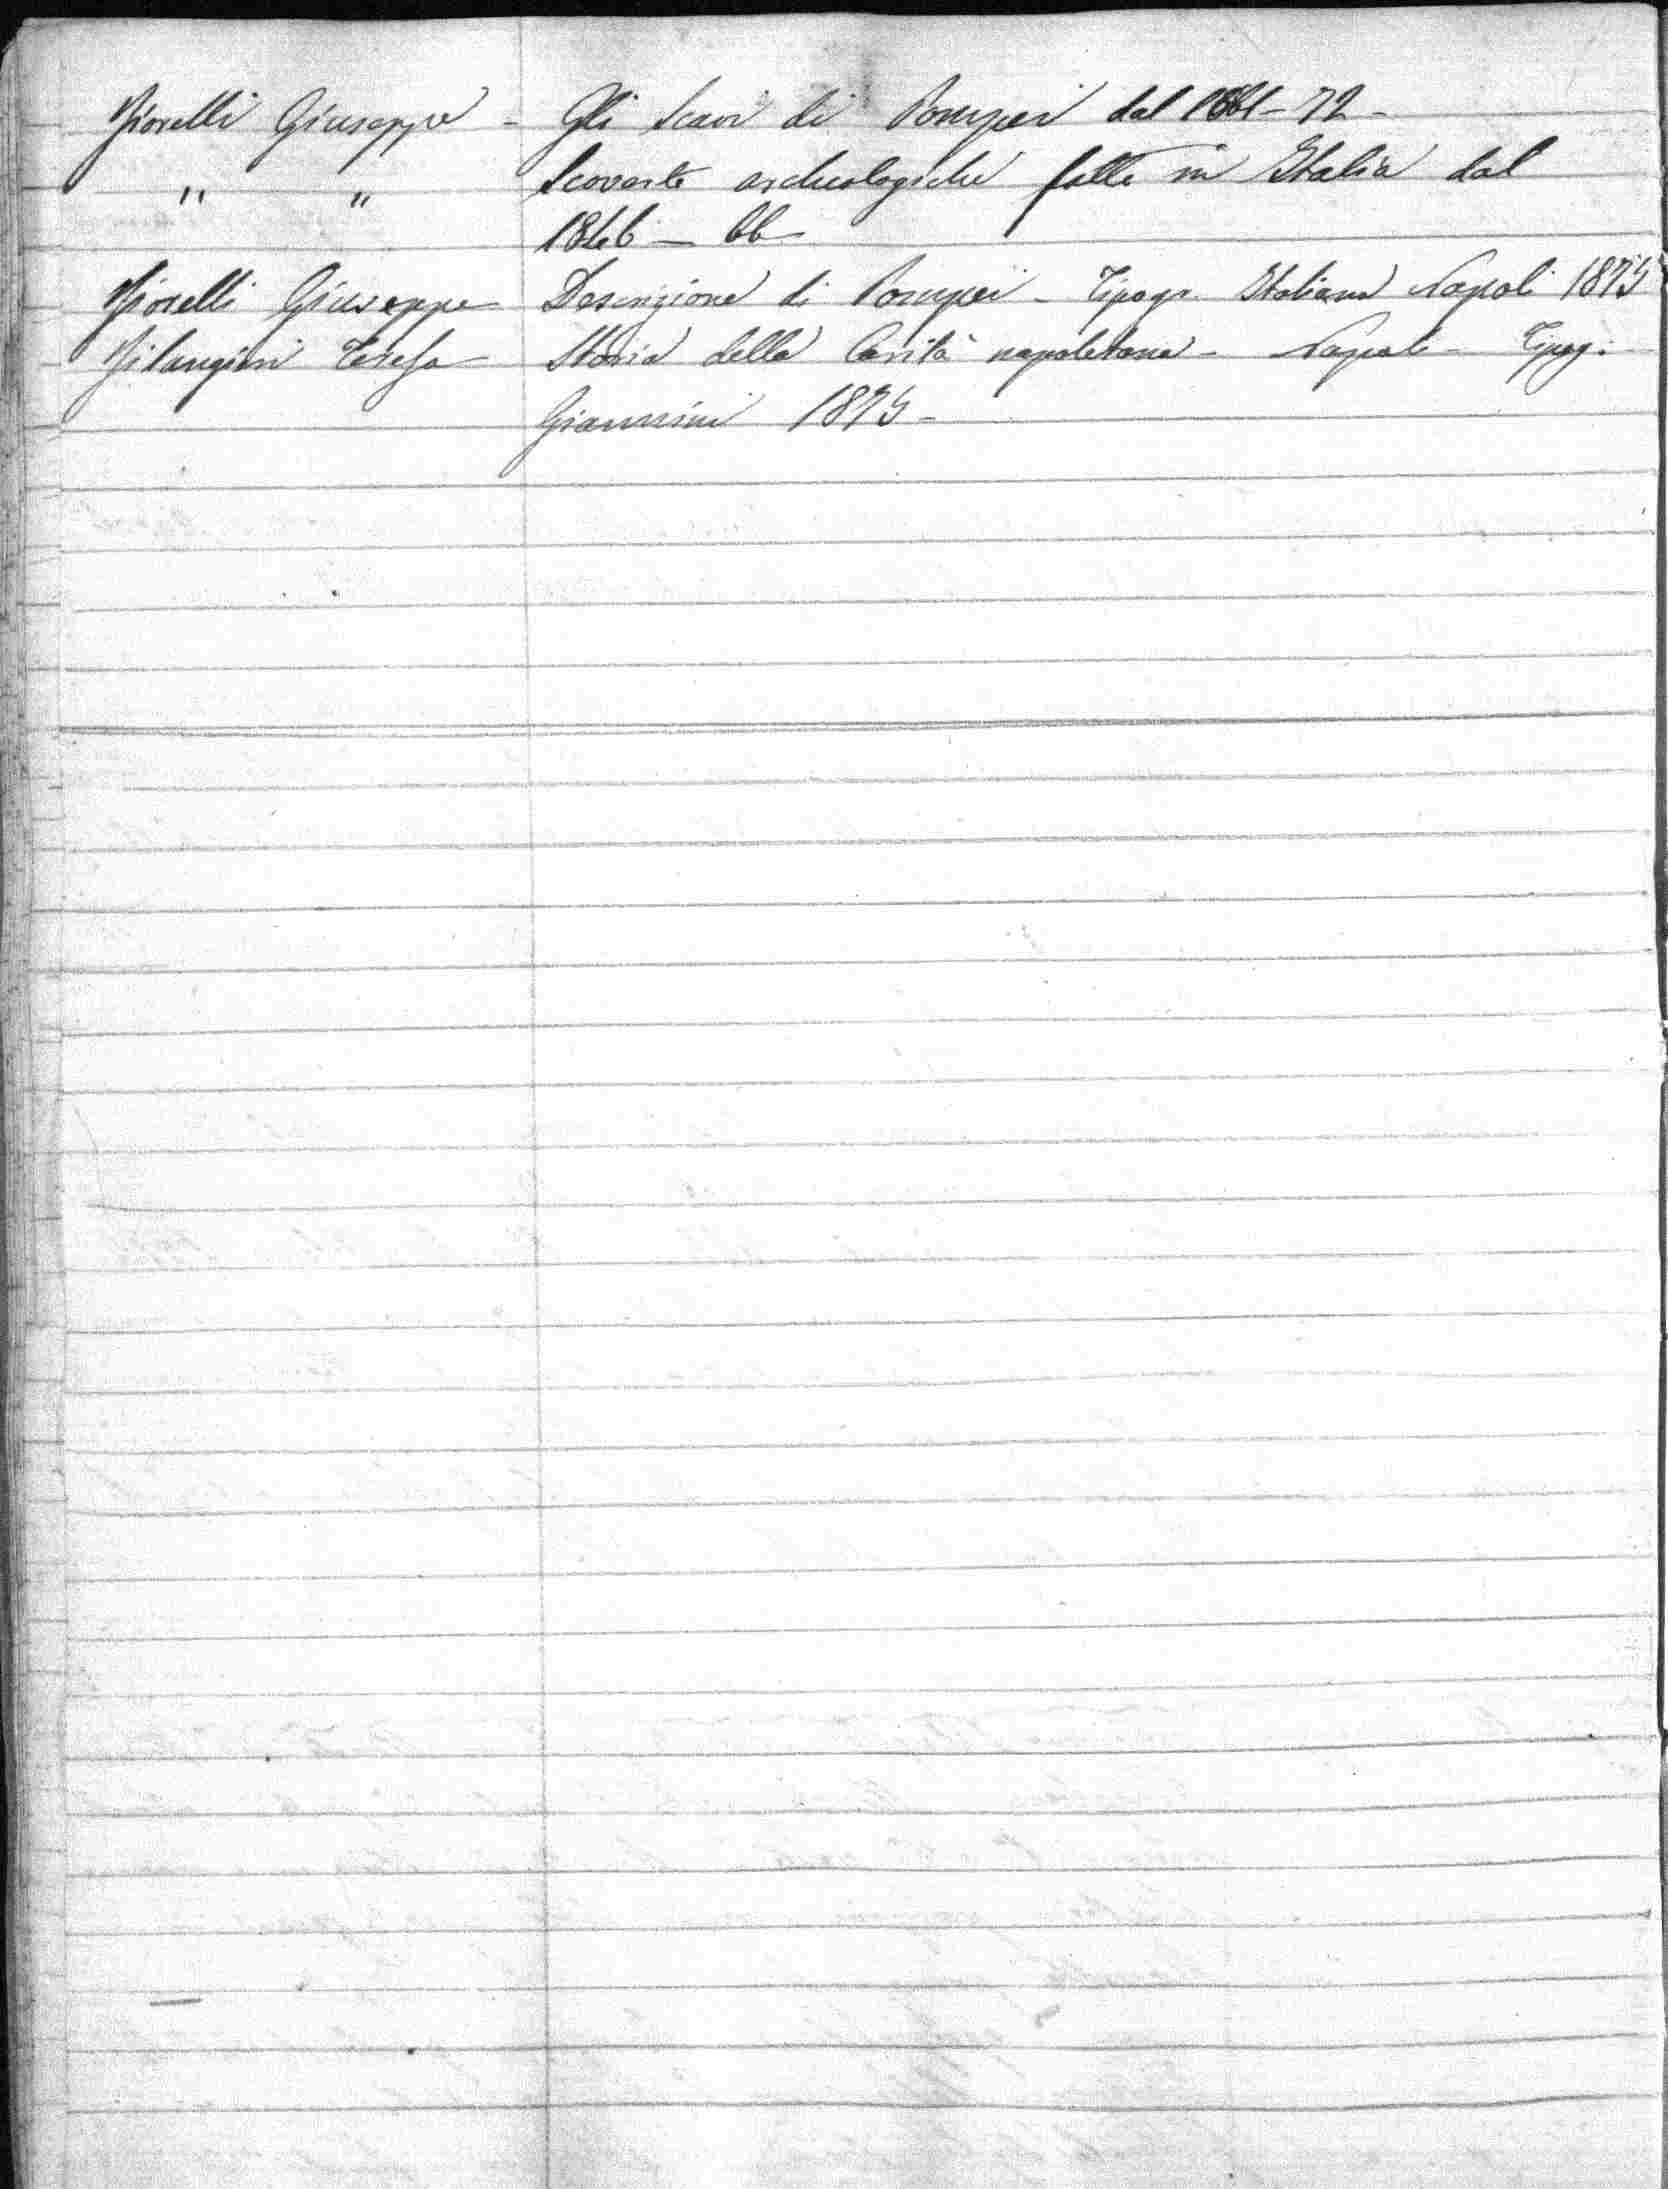 Fiorelli Giuseppe - Gli Scavi di Pompei dal 1861-72 -
" " Scoverte archeologiche fatte in Italia dal
1846 - 66
Fiorelli Giuseppe Descrizione di Pompei - Tipogr. Italiana Napoli 1875
Filangieri Teresa Storia della Carità napoletana - Napoli - Tipog:
Giannini 1875 -